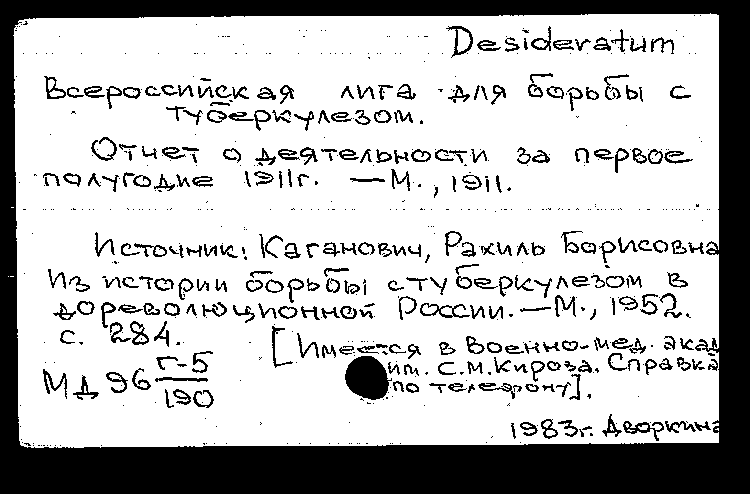 Desideratum
Всероссийская лига для борьбы с
туберкулезом.
Отчет о деятельности за первое
полугодие 1911г. — М., 1911.
Источник: Каганович, Рахиль Борисовна
Из истории борьбы с туберкулезом в
дореволюционной России. — М., 1952.
с. 284.
[Имеется в Военно-мед. акад
им. С.М. Кирова. Справка
по телефону].
МД 96 г-5/190
1983г. Дворкина